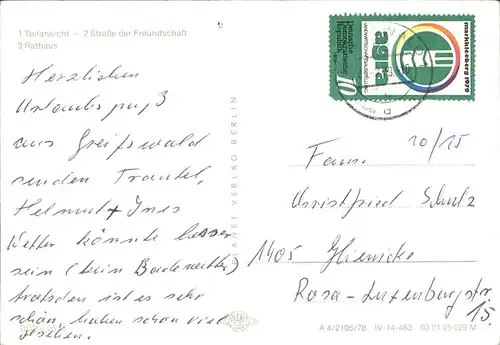 1 Teilansicht – 2 Straße der Freundschaft
3 Rathaus
Herzlichen
Urlaubsgruß
aus Greifswald
senden Trautel,
Helmut + Ines
Wetter könnte besser
sein (kein Badewetter)
trotzdem ist es sehr
schön, haben schon viel
gesehen.
PLANET VERLAG BERLIN
markkleeberg 1979
agra
LANDWIRTSCHAFTSAUSSTELLUNG
Deutsche
Demokratische
Republik
10
10/15
Fam.
Christfried Schulz
1405 Glienicke
Rosa-Luxemburgstr
15.
A 4/2195/78 IV-14-483 03 01 05 029 M